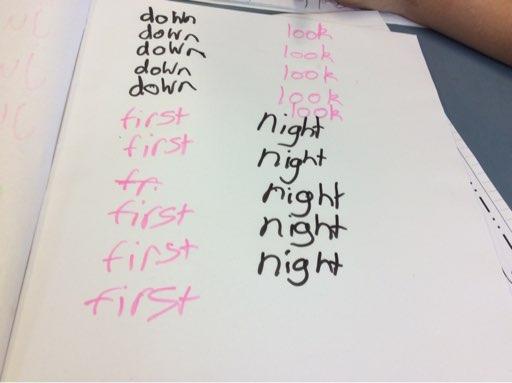 down
down
down
down
down
first
first
fr.
first
first
first
look
look
look
look
look
night
night
night
night
night